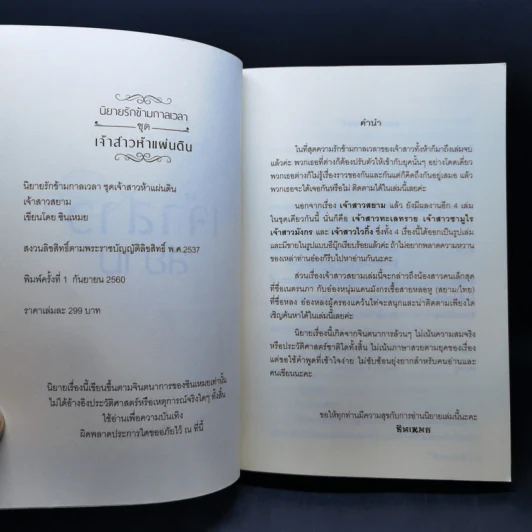 นิยายรักข้ามกาลเวลา
ชุด
เจ้าสาวห้าแผ่นดิน
นิยายรักข้ามกาลเวลา ชุดเจ้าสาวห้าแผ่นดิน
เจ้าสาวสยาม
เขียนโดย ซินเหมย
สงวนลิขสิทธิ์ตามพระราชบัญญัติลิขสิทธิ์ พ.ศ.2537
พิมพ์ครั้งที่ 1 กันยายน 2560
ราคาเล่มละ 299 บาท
นิยายเรื่องนี้เขียนขึ้นตามจินตนาการของซินเหมยเท่านั้น
ไม่ได้อ้างอิงประวัติศาสตร์หรือเหตุการณ์จริงใดๆ ทั้งสิ้น
ใช้อ่านเพื่อความบันเทิง
ผิดพลาดประการใดขออภัยไว้ ณ ที่นี้
คำนำ
ในที่สุดความรักข้ามกาลเวลาของเจ้าสาวทั้งห้าก็มาถึงเล่มจบ
แล้วค่ะ พวกเธอที่ต่างก็ต้องปรับตัวให้เข้ากับยุคนั้นๆ อย่างโดดเดี่ยว
พวกเธอต่างก็ไม่รู้เรื่องราวของกันและกันแต่ก็คิดถึงกันอยู่เสมอ แล้ว
พวกเธอจะได้เจอกันหรือไม่ ติดตามได้ในเล่มนี้เลยค่ะ
นอกจากเรื่อง เจ้าสาวสยาม แล้ว ยังมีผลงานอีก 4 เล่ม
ในชุดเดียวกันนี้ นั่นก็คือ เจ้าสาวทะเลทราย เจ้าสาวซามูไร
เจ้าสาวมังกร และ เจ้าสาวไวกิ้ง ซึ่งทั้ง 4 เรื่องนี้ได้ออกเป็นรูปเล่ม
และมีขายในรูปแบบอีบุ๊กเรียบร้อยแล้วค่ะ ถ้าไม่อยากพลาดความหวาน
ของเหล่าท่านอ๋องก็รีบไปหาอ่านกันนะคะ
ส่วนเรื่องเจ้าสาวสยามเล่มนี้จะกล่าวถึงน้องสาวคนเล็กสุด
ที่ชื่อเนตรนภา กับอ๋องหนุ่มแดนมังกรเชื้อสายหลอหู (สยาม/ไทย)
ที่ชื่อหลง อ๋องหลงผู้ครองแคว้นใต้จะสนุกและน่าติดตามเพียงใด
เชิญค้นหาได้ในเล่มนี้เลยค่ะ
นิยายเรื่องนี้เกิดจากจินตนาการล้วนๆ ไม่เน้นความสมจริง
หรือประวัติศาสตร์ชาติใดทั้งสิ้น ไม่เน้นภาษาสวยตามยุคของเรื่อง
แต่ขอใช้คำพูดที่เข้าใจง่าย ไม่ซับซ้อนยุ่งยากสำหรับคนอ่านและ
คนเขียนนะคะ
ขอให้ทุกท่านมีความสุขกับการอ่านนิยายเล่มนี้นะคะ
ซินเหมย